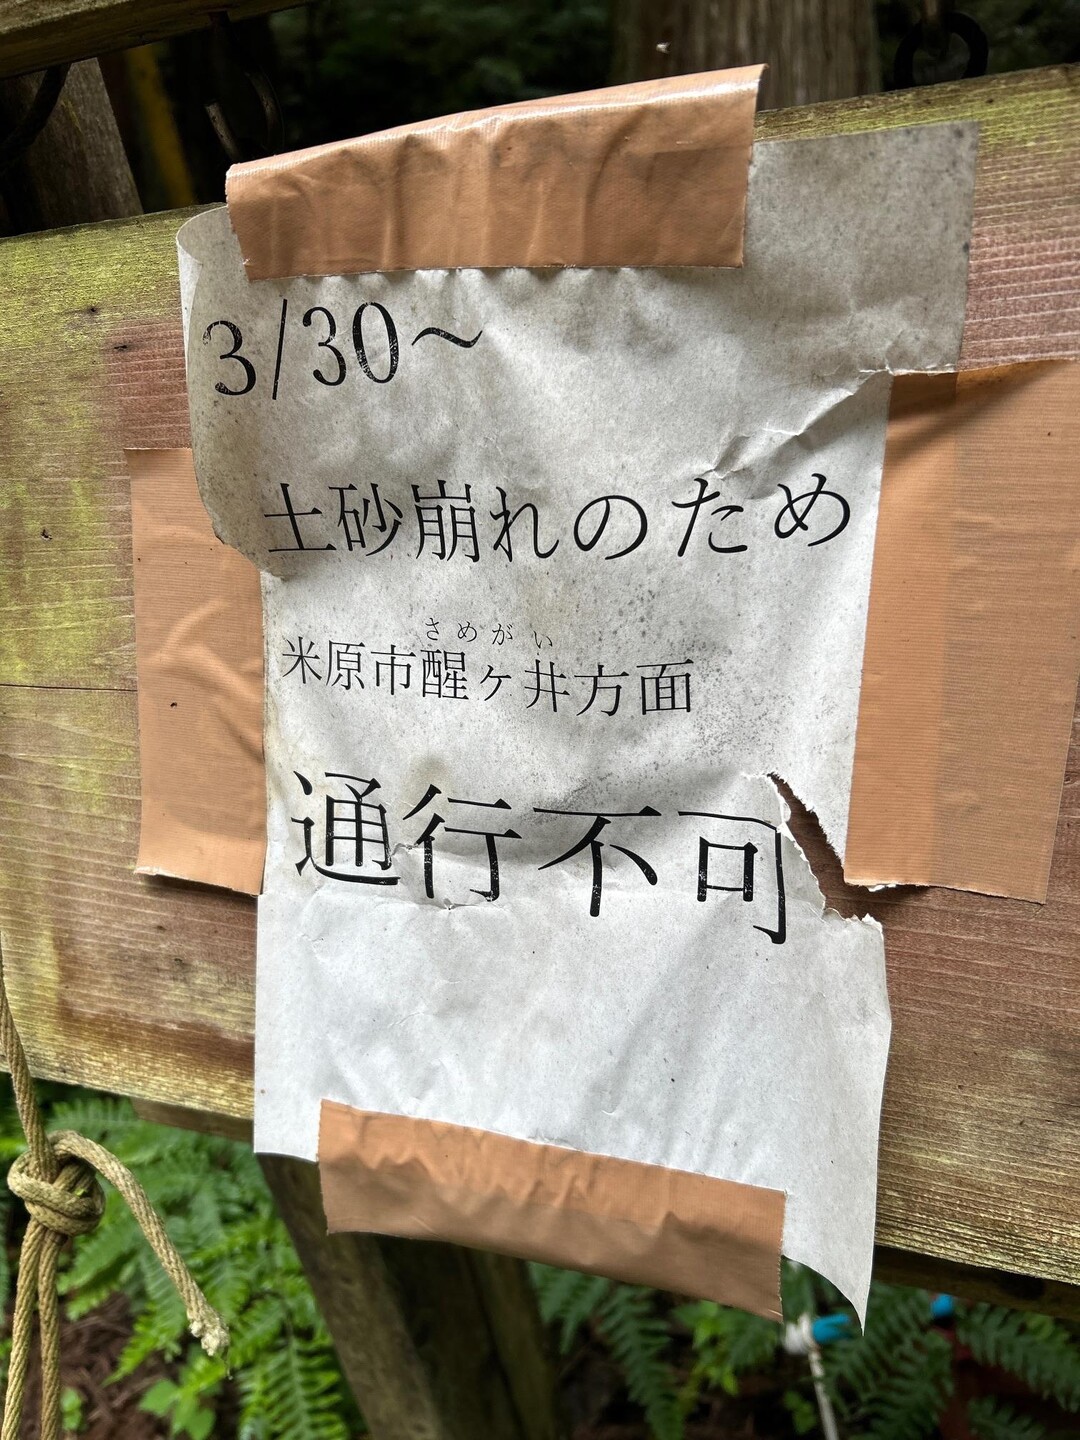 3/30～
土砂崩れのため
さめがい
米原市醒ヶ井方面
通行不可